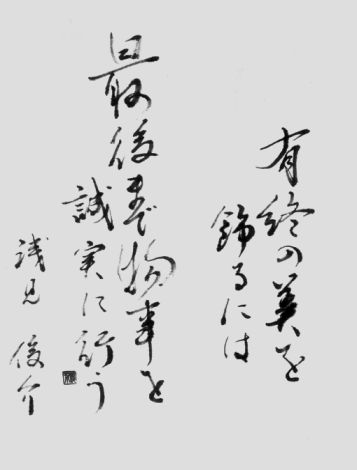 有終の美を
飾るには
最後まで物事を
誠実に行う
浅見 俊介